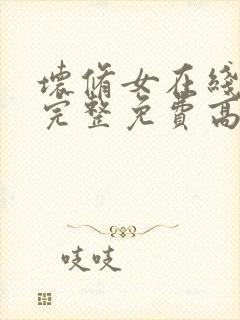 壞脩女在綫
完整免費高
吱吱